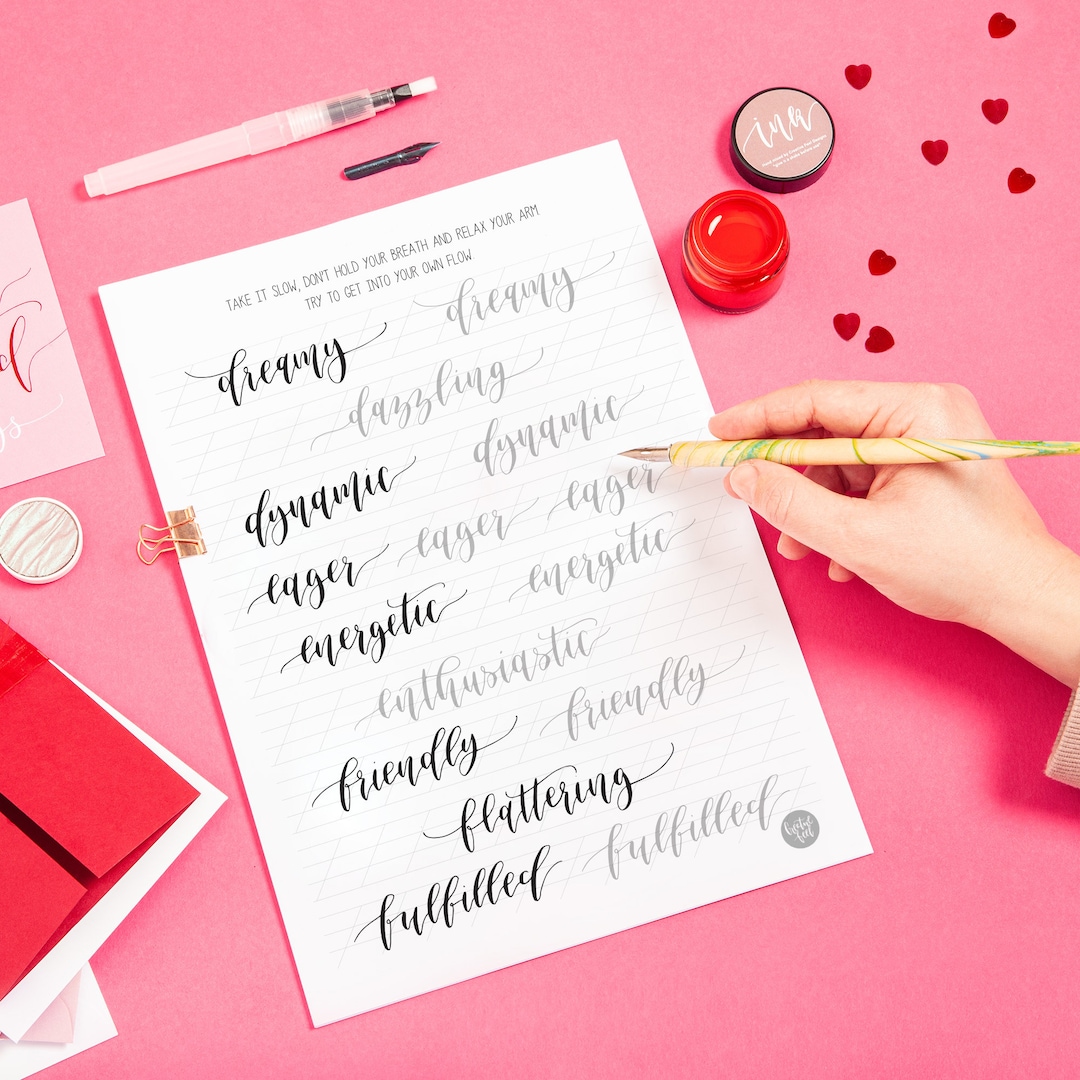 TAKE IT SLOW, DON'T HOLD YOUR BREATH AND RELAX YOUR ARM
TRY TO GET INTO YOUR OWN FLOW
dreamy dreamy
dazzling
dynamic dynamic
eager eager eager
energetic energetic
enthusiastic
friendly friendly
flattering
fulfilled fulfilled
ink